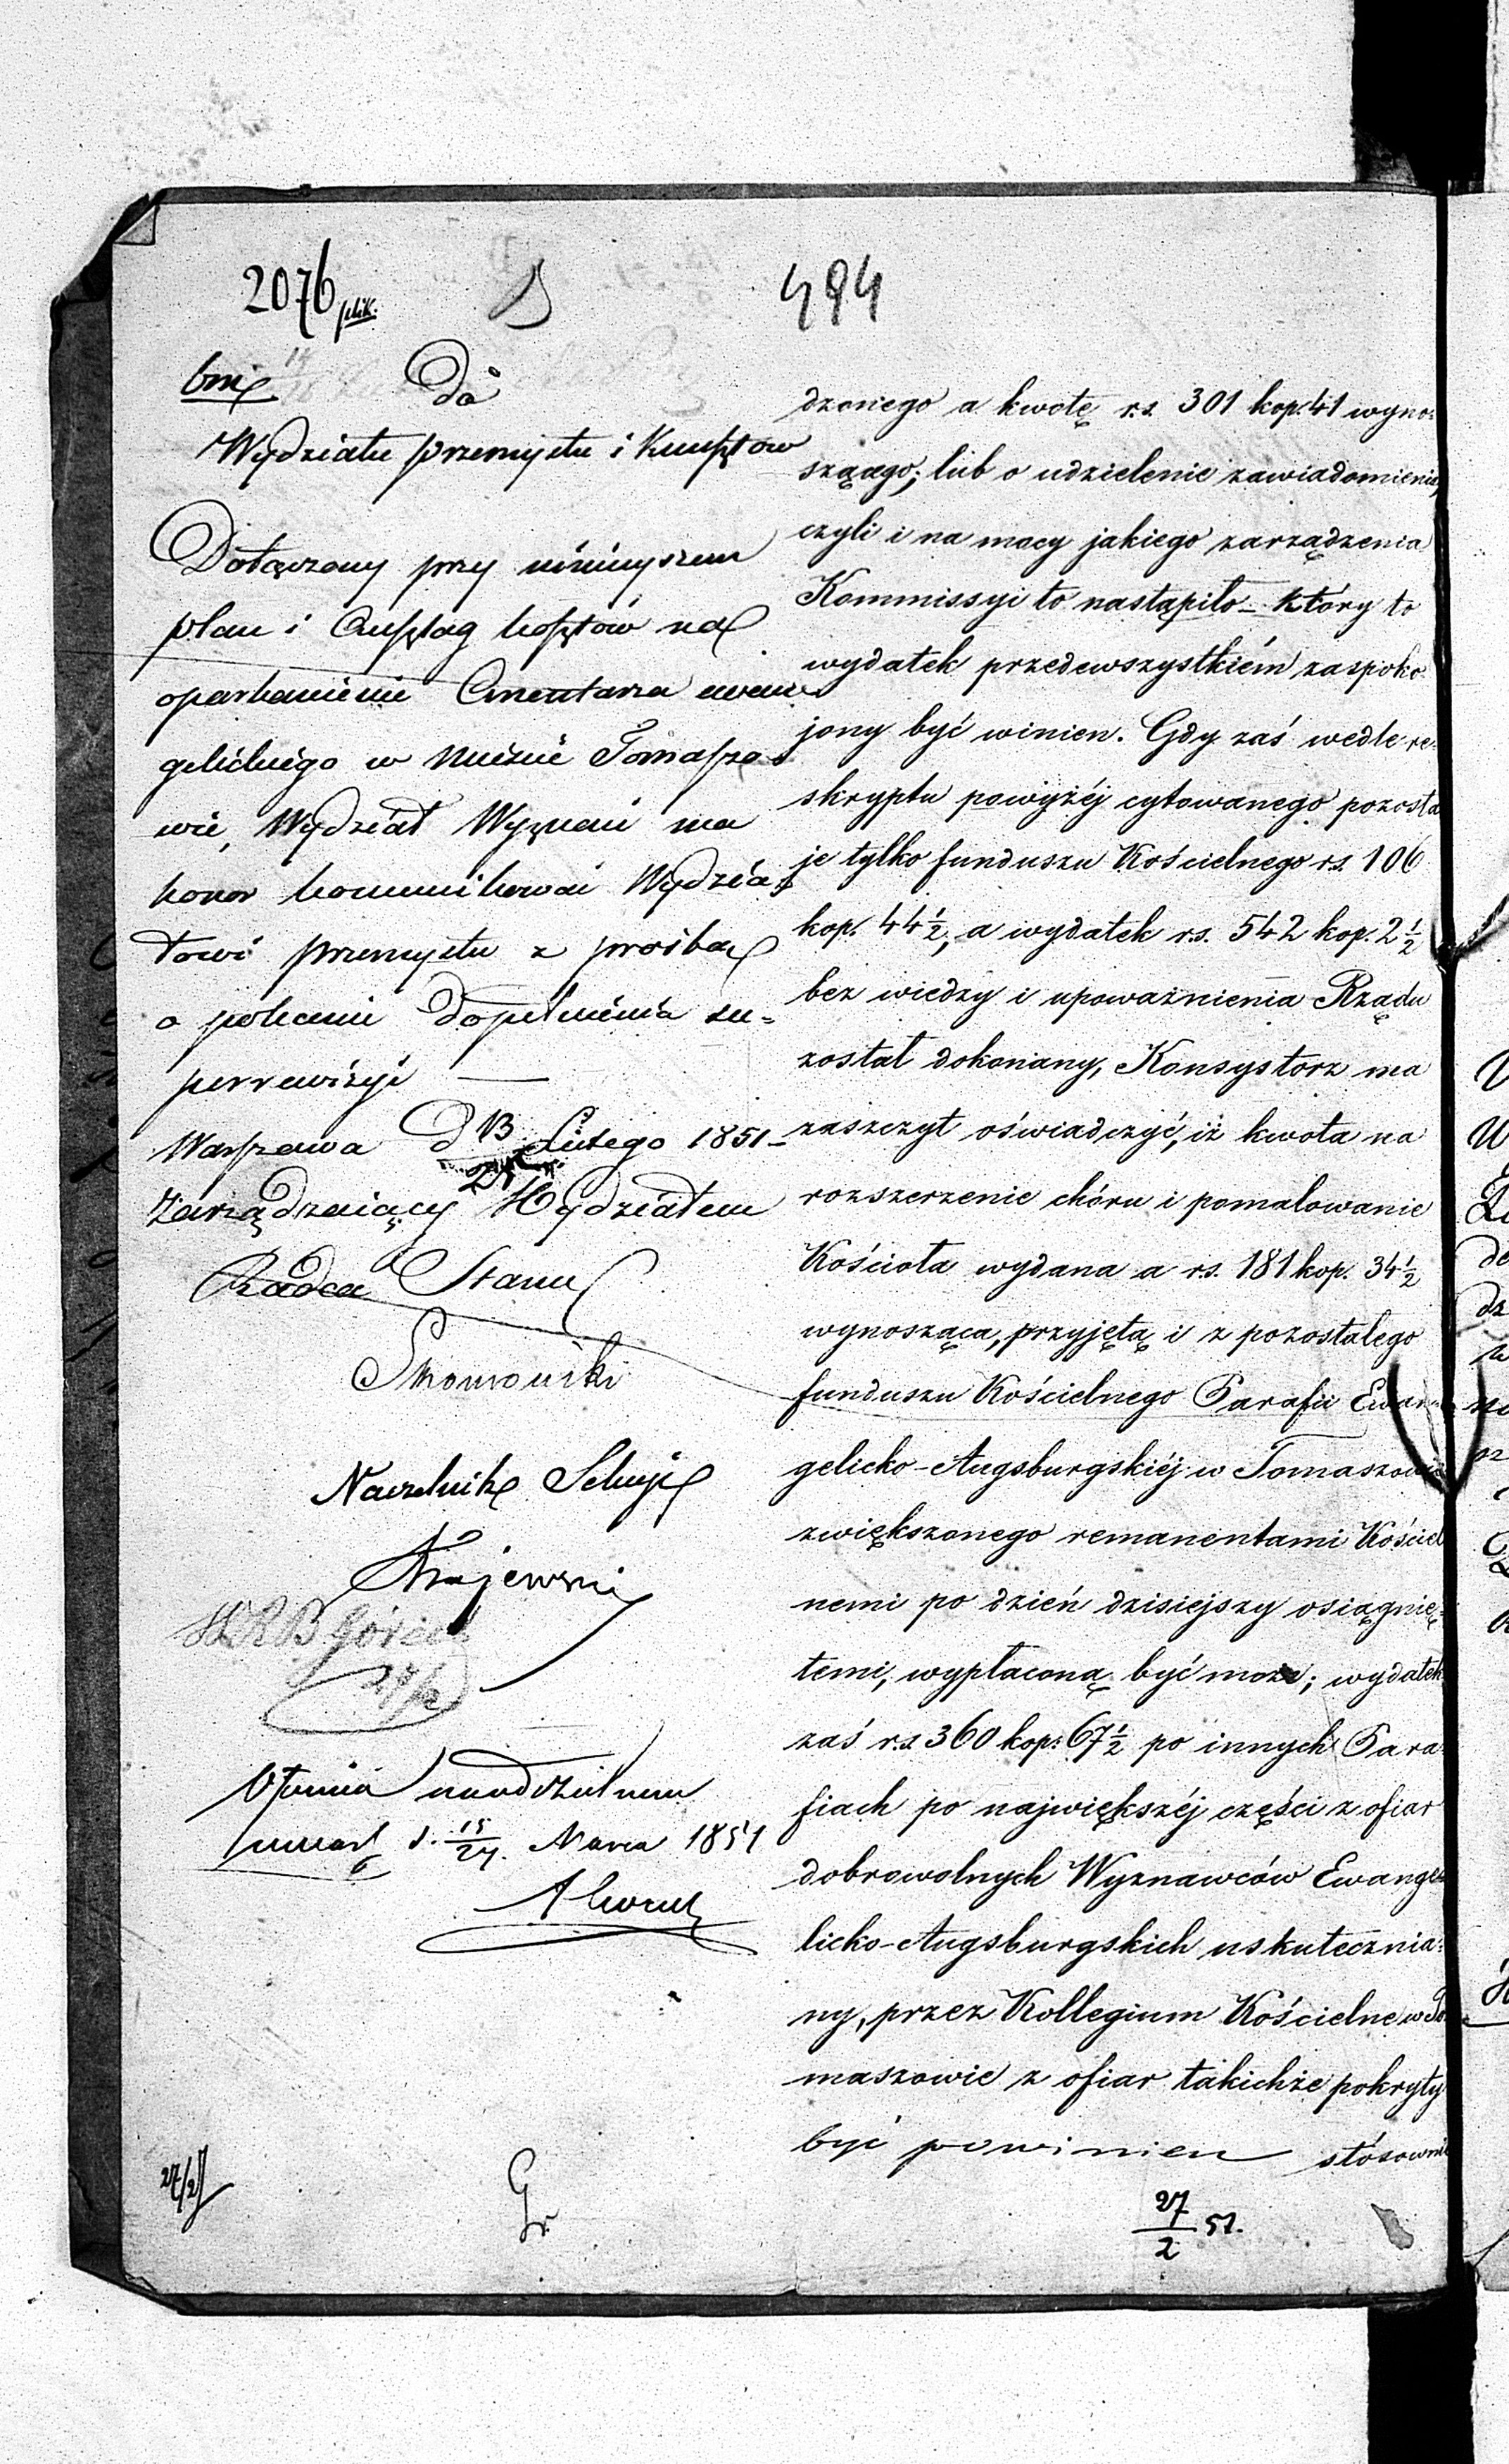 2076
494
Do
Wydziału przemysłu i Kunsztów
Dołączony przy niniejszem
plan i Anszlag kosztów na
oparkanienie Cmentarza ewan
gelickiego w mieście Tomaszo
wie, Wydział Wyznań ma
honor kommunikować Wydzia
łowi przemysłu z prośbą
o polecenie dopełnienia su=
perrewizyi —
Warszawa d 13/25 Lutego 1851 -
Zarządzający Wydziałem
Radca Stanu
Naczelnik Sekcyi
Krajewski
d. 15/27. Marca 1851
27/2
dzonego a kwotę r.s. 301 kop. 41 wyno=
szącego; lub o udzielenie zawiadomienia,
czyli i na mocy jakiego zarządzenia
Kommissyi to nastąpiło – który to
wydatek przedewszystkiém zaspoko=
jony być winien. Gdy zaś wedle re=
skryptu powyżéj cytowanego pozosta
je tylko funduszu Kościelnego r.s. 106
kop. 44½, a wydatek r.s. 542 kop. 2½
bez wiedzy i upoważnienia Rządu
został dokonany, Konsystorz ma
zaszczyt oświadczyć, iż kwota na
rozszerzenie chóru i pomalowanie
Kościoła wydana a r.s. 181 kop. 34½
wynosząca, przyjętą i z pozostałego
funduszu Kościelnego Parafii Ewan
gelicko-Augsburgskiéj w Tomaszowie
zwiększonego remanentami Kościel
nemi po dzień dzisiejszy osiągnię=
temi, wypłaconą być może; wydatek
zaś r.s. 360 kop: 67½ po innych Para
fiach po największéj części z ofiar
dobrowolnych Wyznawców Ewange=
licko-Augsburgskich uskutecznia=
ny, przez Kollegium Kościelne w To
maszowie z ofiar takichże pokryty
być powinien stósownie
27/2 51.